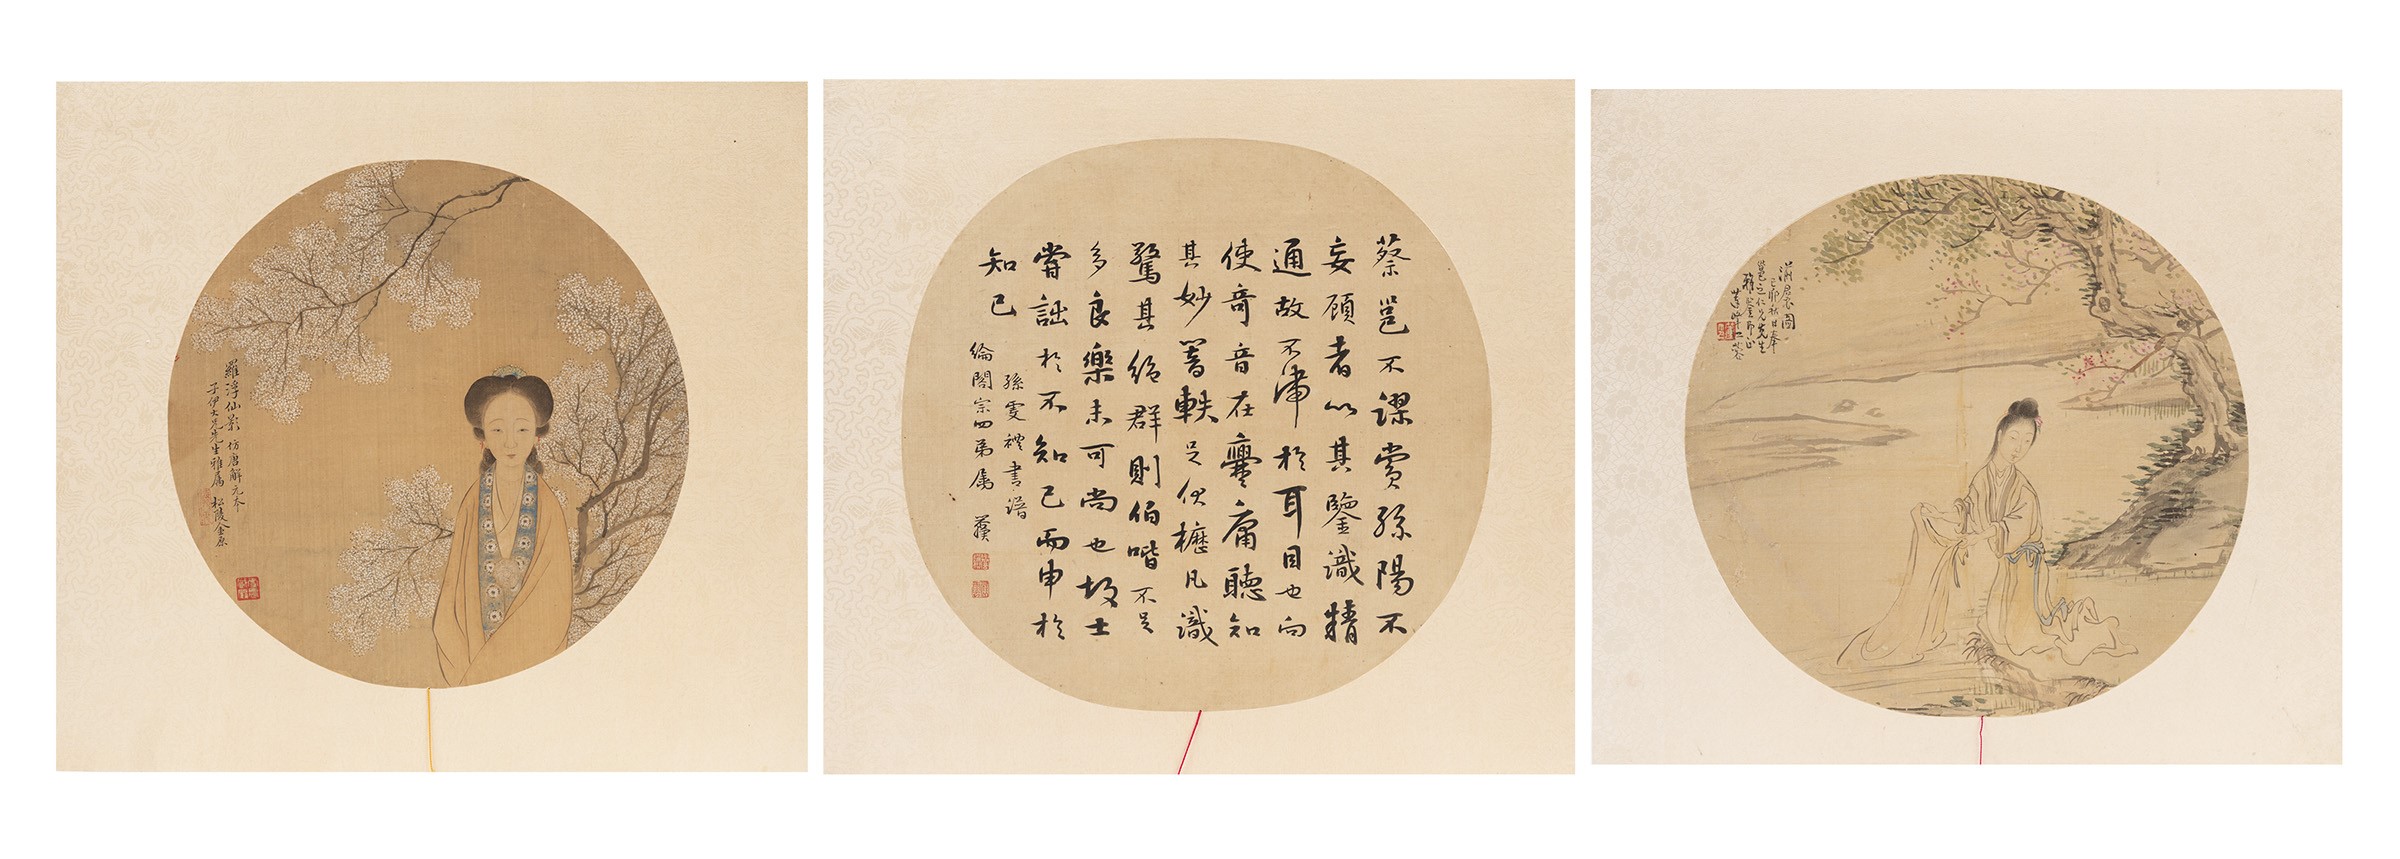 羅浮仙影 仿唐解元本
子伊大兄先生雅屬 松陵金原
蔡邕不謬賞孫陽不
妄顧者以其鑒識精
通故不滯於耳目也向
使奇音在爨庸聽知
其妙響軼足伏櫪凡識
驚其絕群則伯喈不足
多良樂未可尚也故士
嘗詘於不知己而申於
知己
孫虔禮書譜
綸閣宗四弟屬
湔裙圖
己卯秋日奉
邕之仁兄先生
雅鑒即正